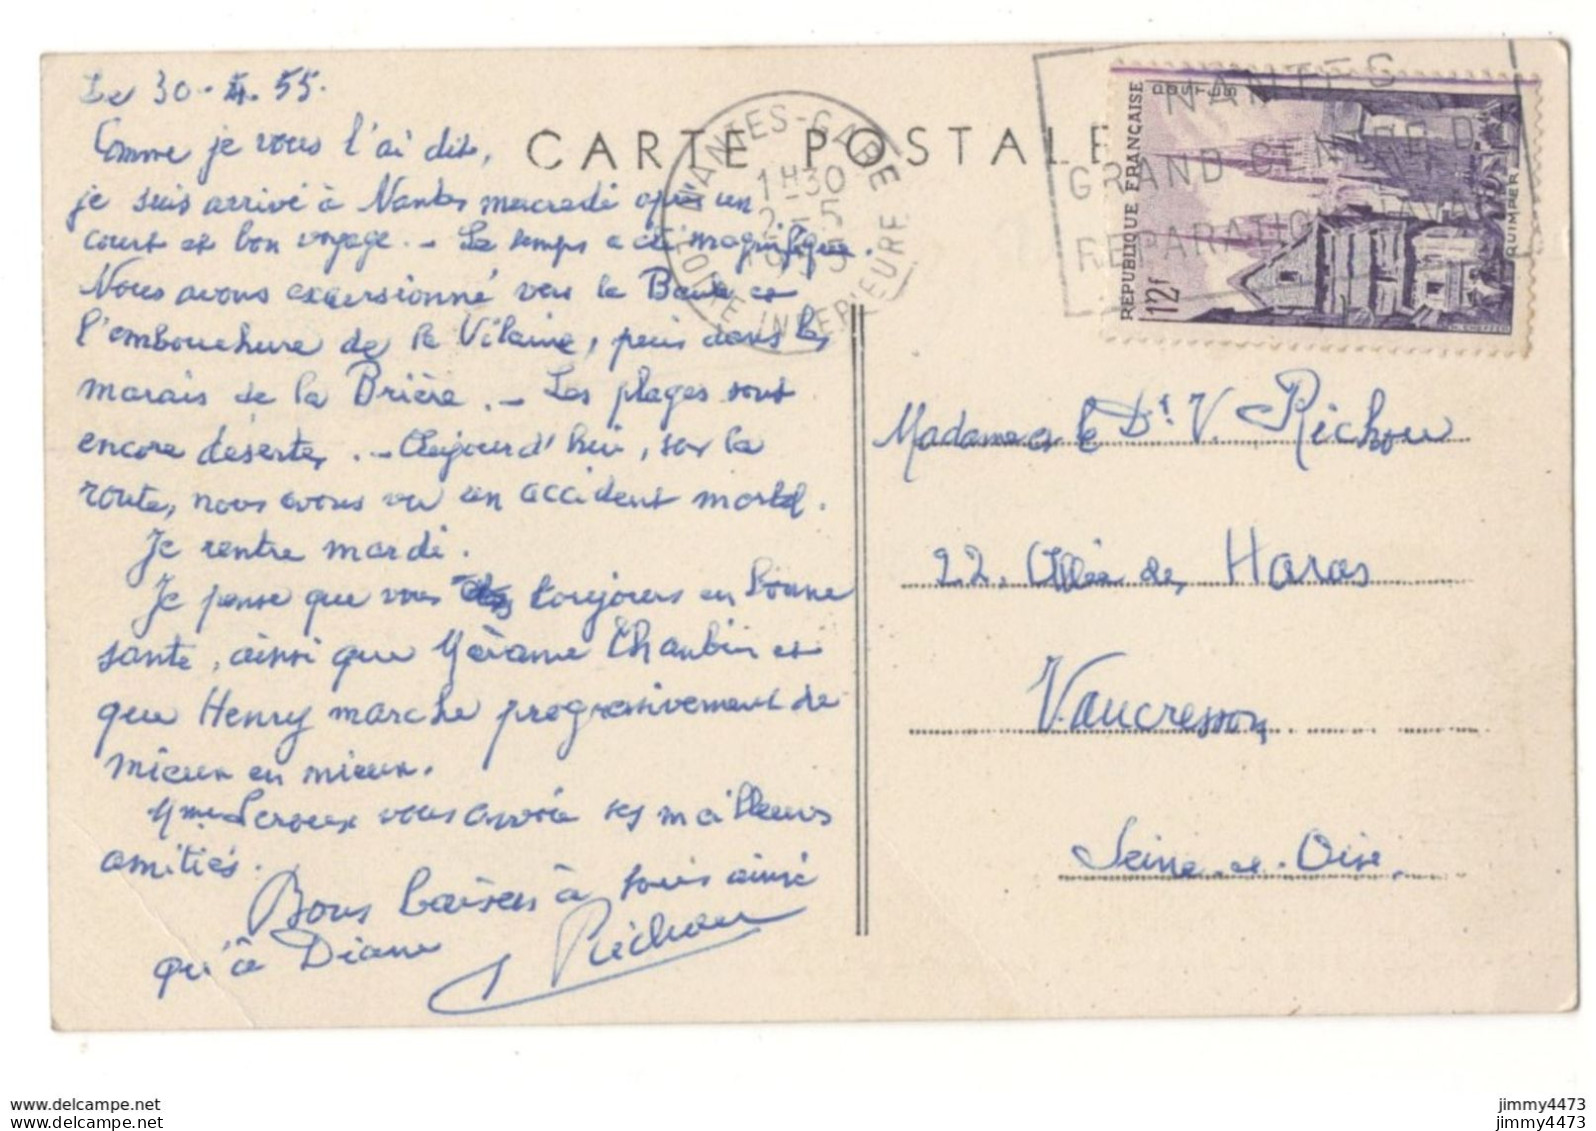 Le 30-4.55.
Comme je vous l'ai dit,
je suis arrivé à Nantes mercredi après un
court et bon voyage. - Le temps a été magnifique.
Nous avons excursionné vers la Baule et
l'embouchure de la Vilaine, puis dans les
marais de la Brière. - Les plages sont
encore désertes. - Aujourd'hui, sur la
route, nous avons vu un accident mortel.
Je rentre mardi.
Je pense que vous toujours en bonne
santé, ainsi que Madame Chaubin et
que Henry marche progressivement de
mieux en mieux.
Mme Leroux vous envoie ses meilleurs
amitiés.
Bons baisers à tous ainsi
qu'à Diane
Richou
CARTE POSTALE
NANTES-GARE
1H30
2-5
LOIRE INFERIEURE
NANTES
GRAND CENTRE D
REPARATION NAVALE
POSTES
RÉPUBLIQUE FRANÇAISE
12F
QUIMPER
Madame et le Dr V. Richou
22, Allée des Haras
Vaucresson
Seine-et-Oise.
www.delcampe.net
https://www.delcampe.net
jimmy4473
jimmy4473